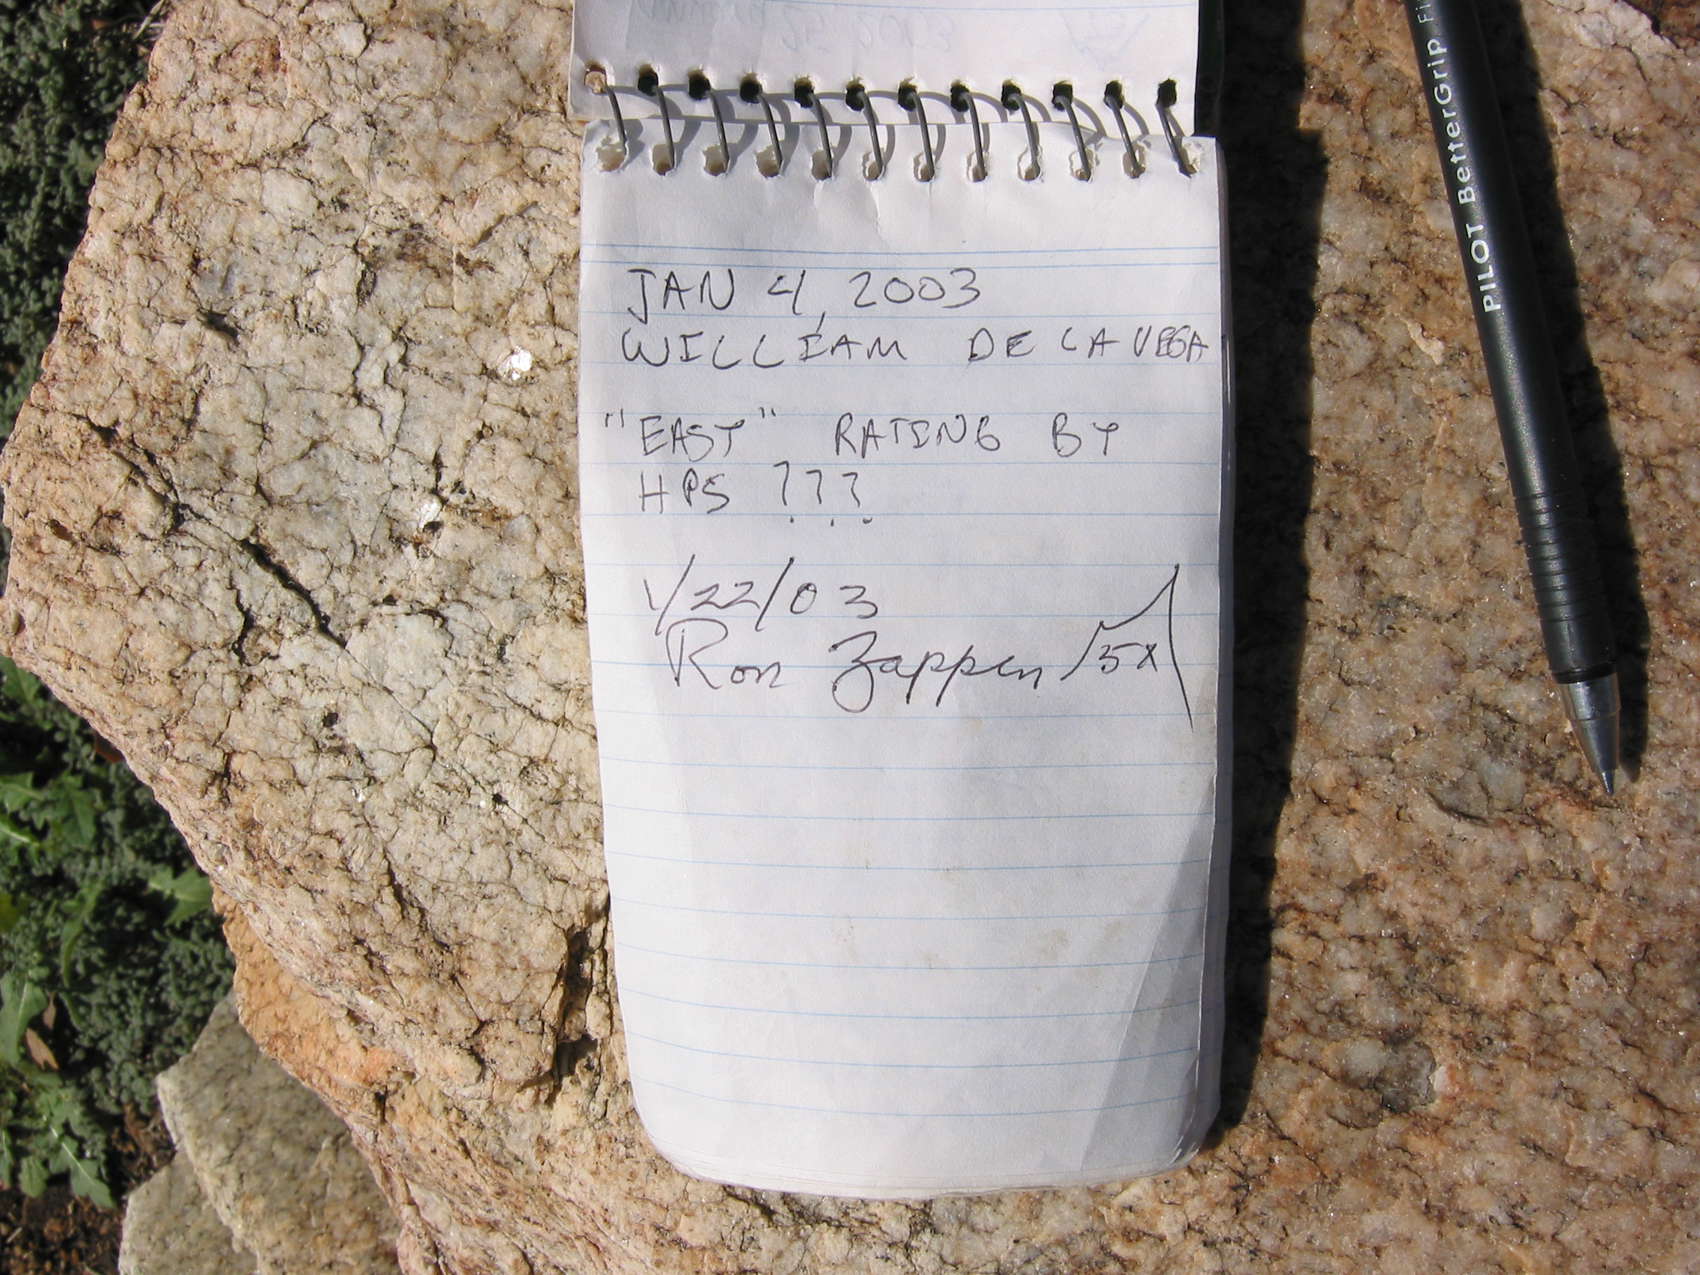 JAN 4, 2003
WILLIAM DE LA VEGA
"EASY" RATING BY
HPS ???
1/22/03
Ron Zappen 5x
PILOT BetterGrip Fi